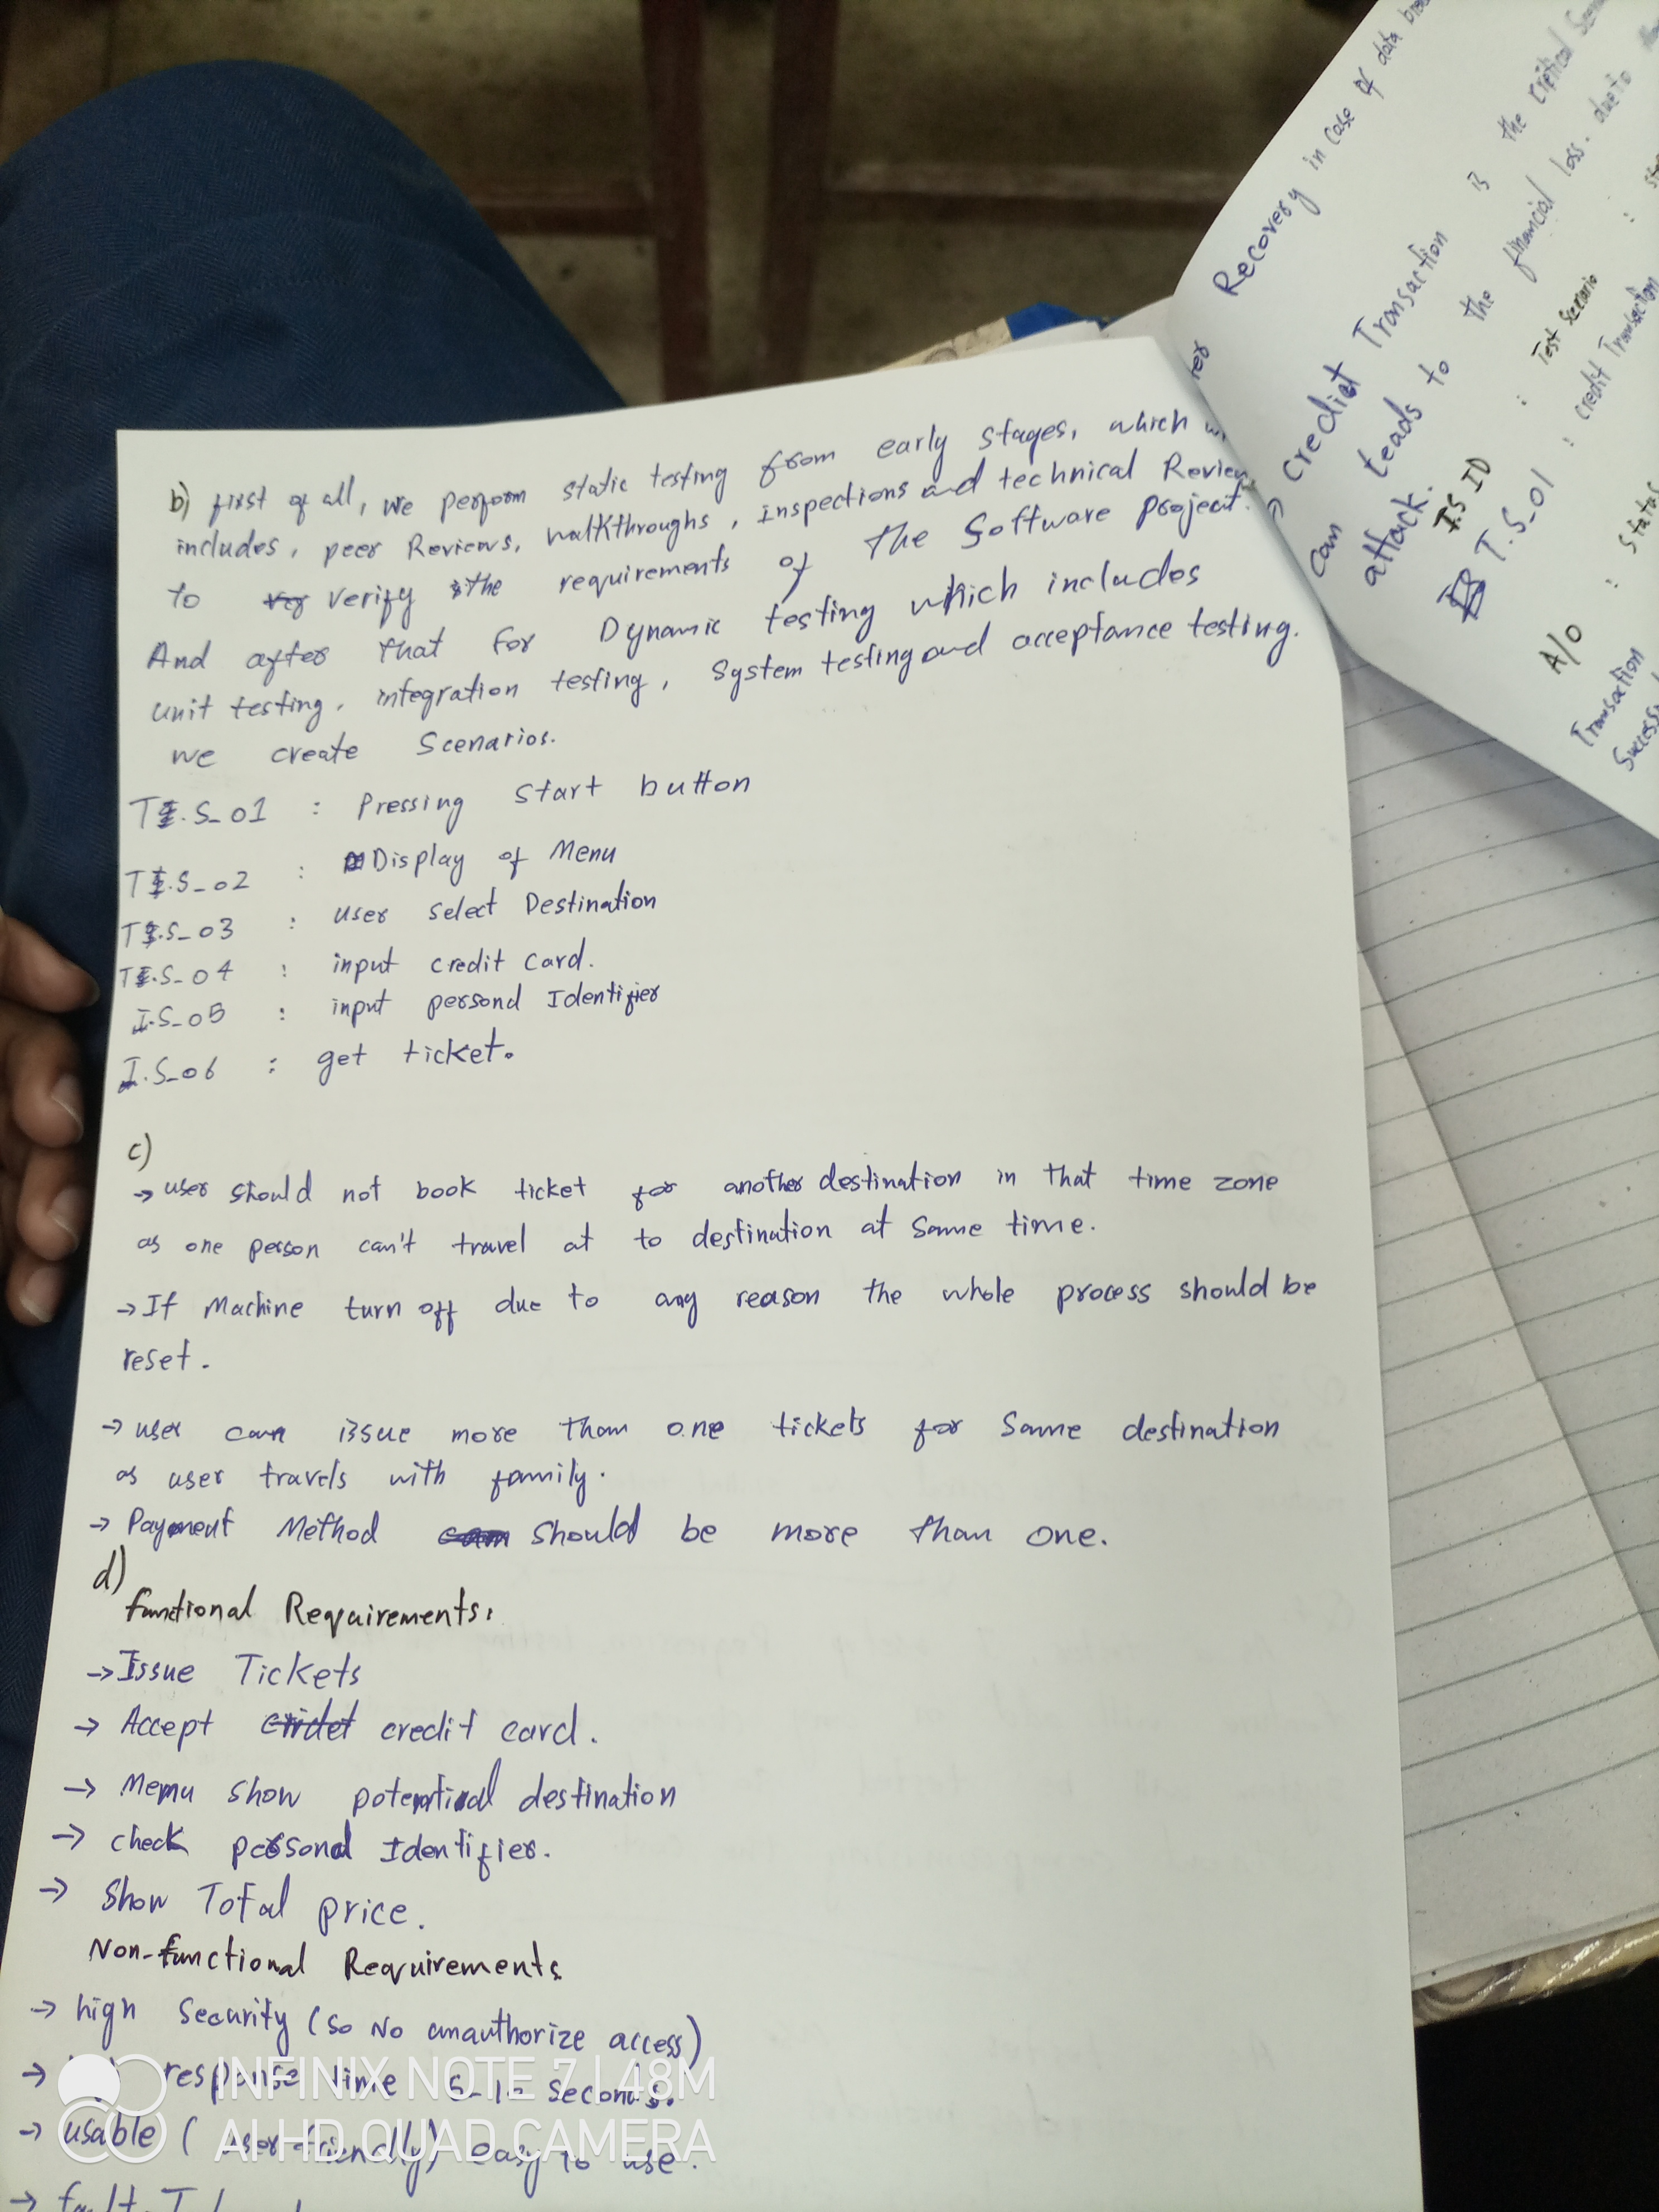 b) first of all, we perform static testing from early stages, which
includes, peer Reviews, walkthroughs, inspections and technical Review
to verify the requirements of the Software project.
And after that for Dynamic testing which includes
unit testing, integration testing, System testing and acceptance testing.
we create Scenarios.
T.S_01 : Pressing start button
T.S_02 : Display of Menu
T.S_03 : user select Destination
T.S_04 : input credit card.
T.S_05 : input personal Identifier
T.S_06 : get ticket.
c)
→ user should not book ticket for another destination in that time zone
as one person can't travel at to destination at same time.
→ If Machine turn off due to any reason the whole process should be
reset.
→ user can issue more than one tickets for same destination
as user travels with family.
→ Payment Method should be more than one.
d)
functional Requirements:
→ Issue Tickets
→ Accept credit card.
→ Menu show potential destination
→ check personal Identifier.
→ Show Total price.
Non-functional Requirements
→ high Security (so No unauthorize access)
→ response time 5-10 seconds.
→ usable (user-friendly) easy to use.
Recovery in case of data
→ Crediat Transaction is the critical
can leads to the financial loss. due to
attack.
T.S ID : Test Scenario
T.S_01 : credit Transaction
A/O : Status
Transaction
INFINIX NOTE 7 | 48M
AI HD QUAD CAMERA